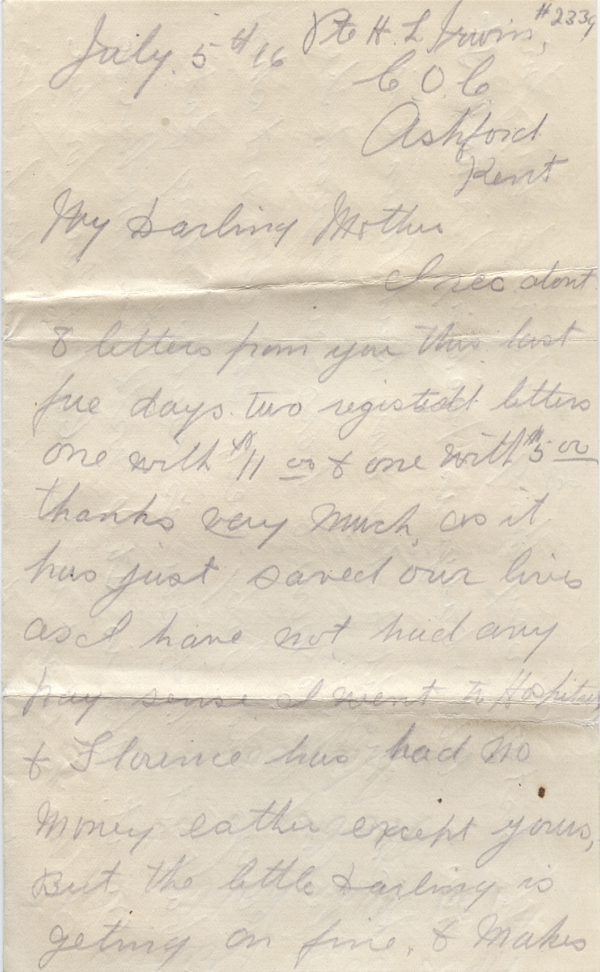 July 5th 16 Pte H. L Irwin, #2339
C.O.C
Ashford
Kent
My Darling Mother
I rec
8 letters from you this last
five days. two letters
one with $11 00 & one with $5 00
thanks very much, as it
has just saved our lives
as I have not had any
pay sense I went to Hospital
& Florence has had no
money eather except yours,
But the little Darling is
geting on fine. & makes